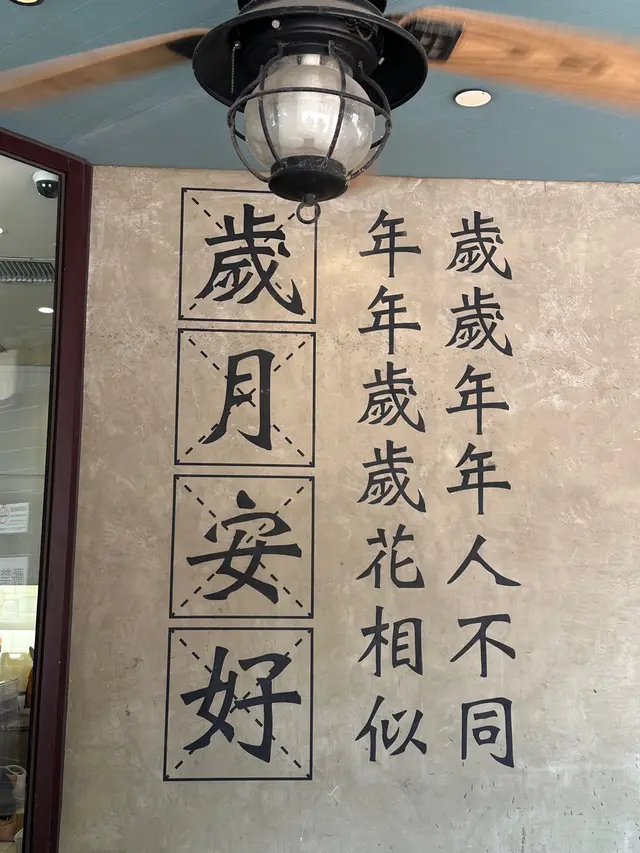 歲歲年年人不同
年年歲歲花相似
歲月安好